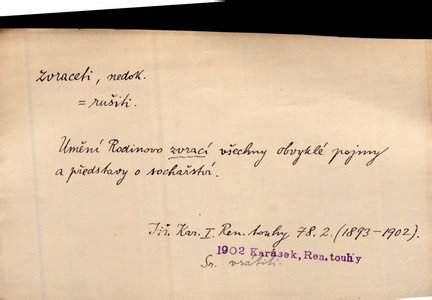 zvraceti, nedok.
= rušiti.
Umění Rodinovo zvrací všechny obvyklé pojmy
a představy o sochařství.
Jiř. Kar. I. Ren. touhy 78. 2. (1893–1902).
1902 Karásek, Ren. touhy
Sr. vrátiti.